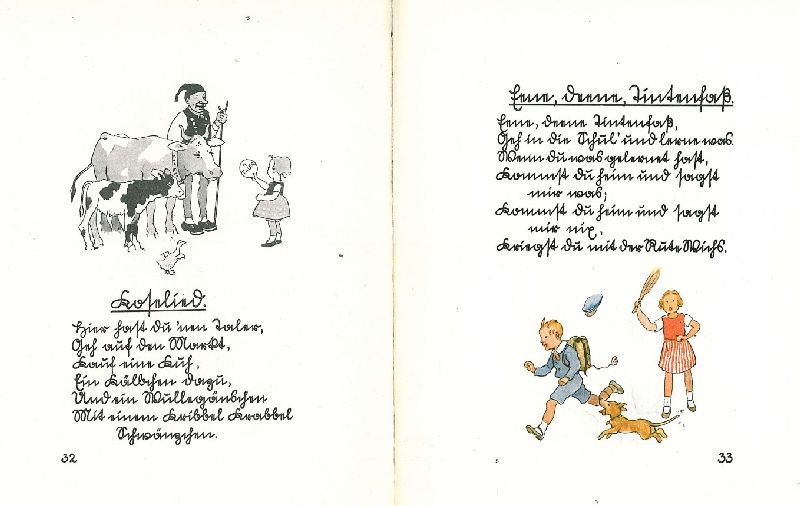 Koselied.
Hier hast du 'nen Taler,
Geh auf den Markt,
Kauf eine Kuh,
Ein Kälbchen dazu,
Und ein Wullegänschen
Mit einem Kribbel Krabbel
Schwänzchen.
32
Eene, deene, Tintenfaß.
Eene, deene Tintenfaß,
Geh in die Schul' und lerne was.
Wenn du was gelernet hast,
Kommst du heim und sagst
mir was;
Kommst du heim und sagst
mir nix,
Kriegst du mit der Rute Wichs.
33